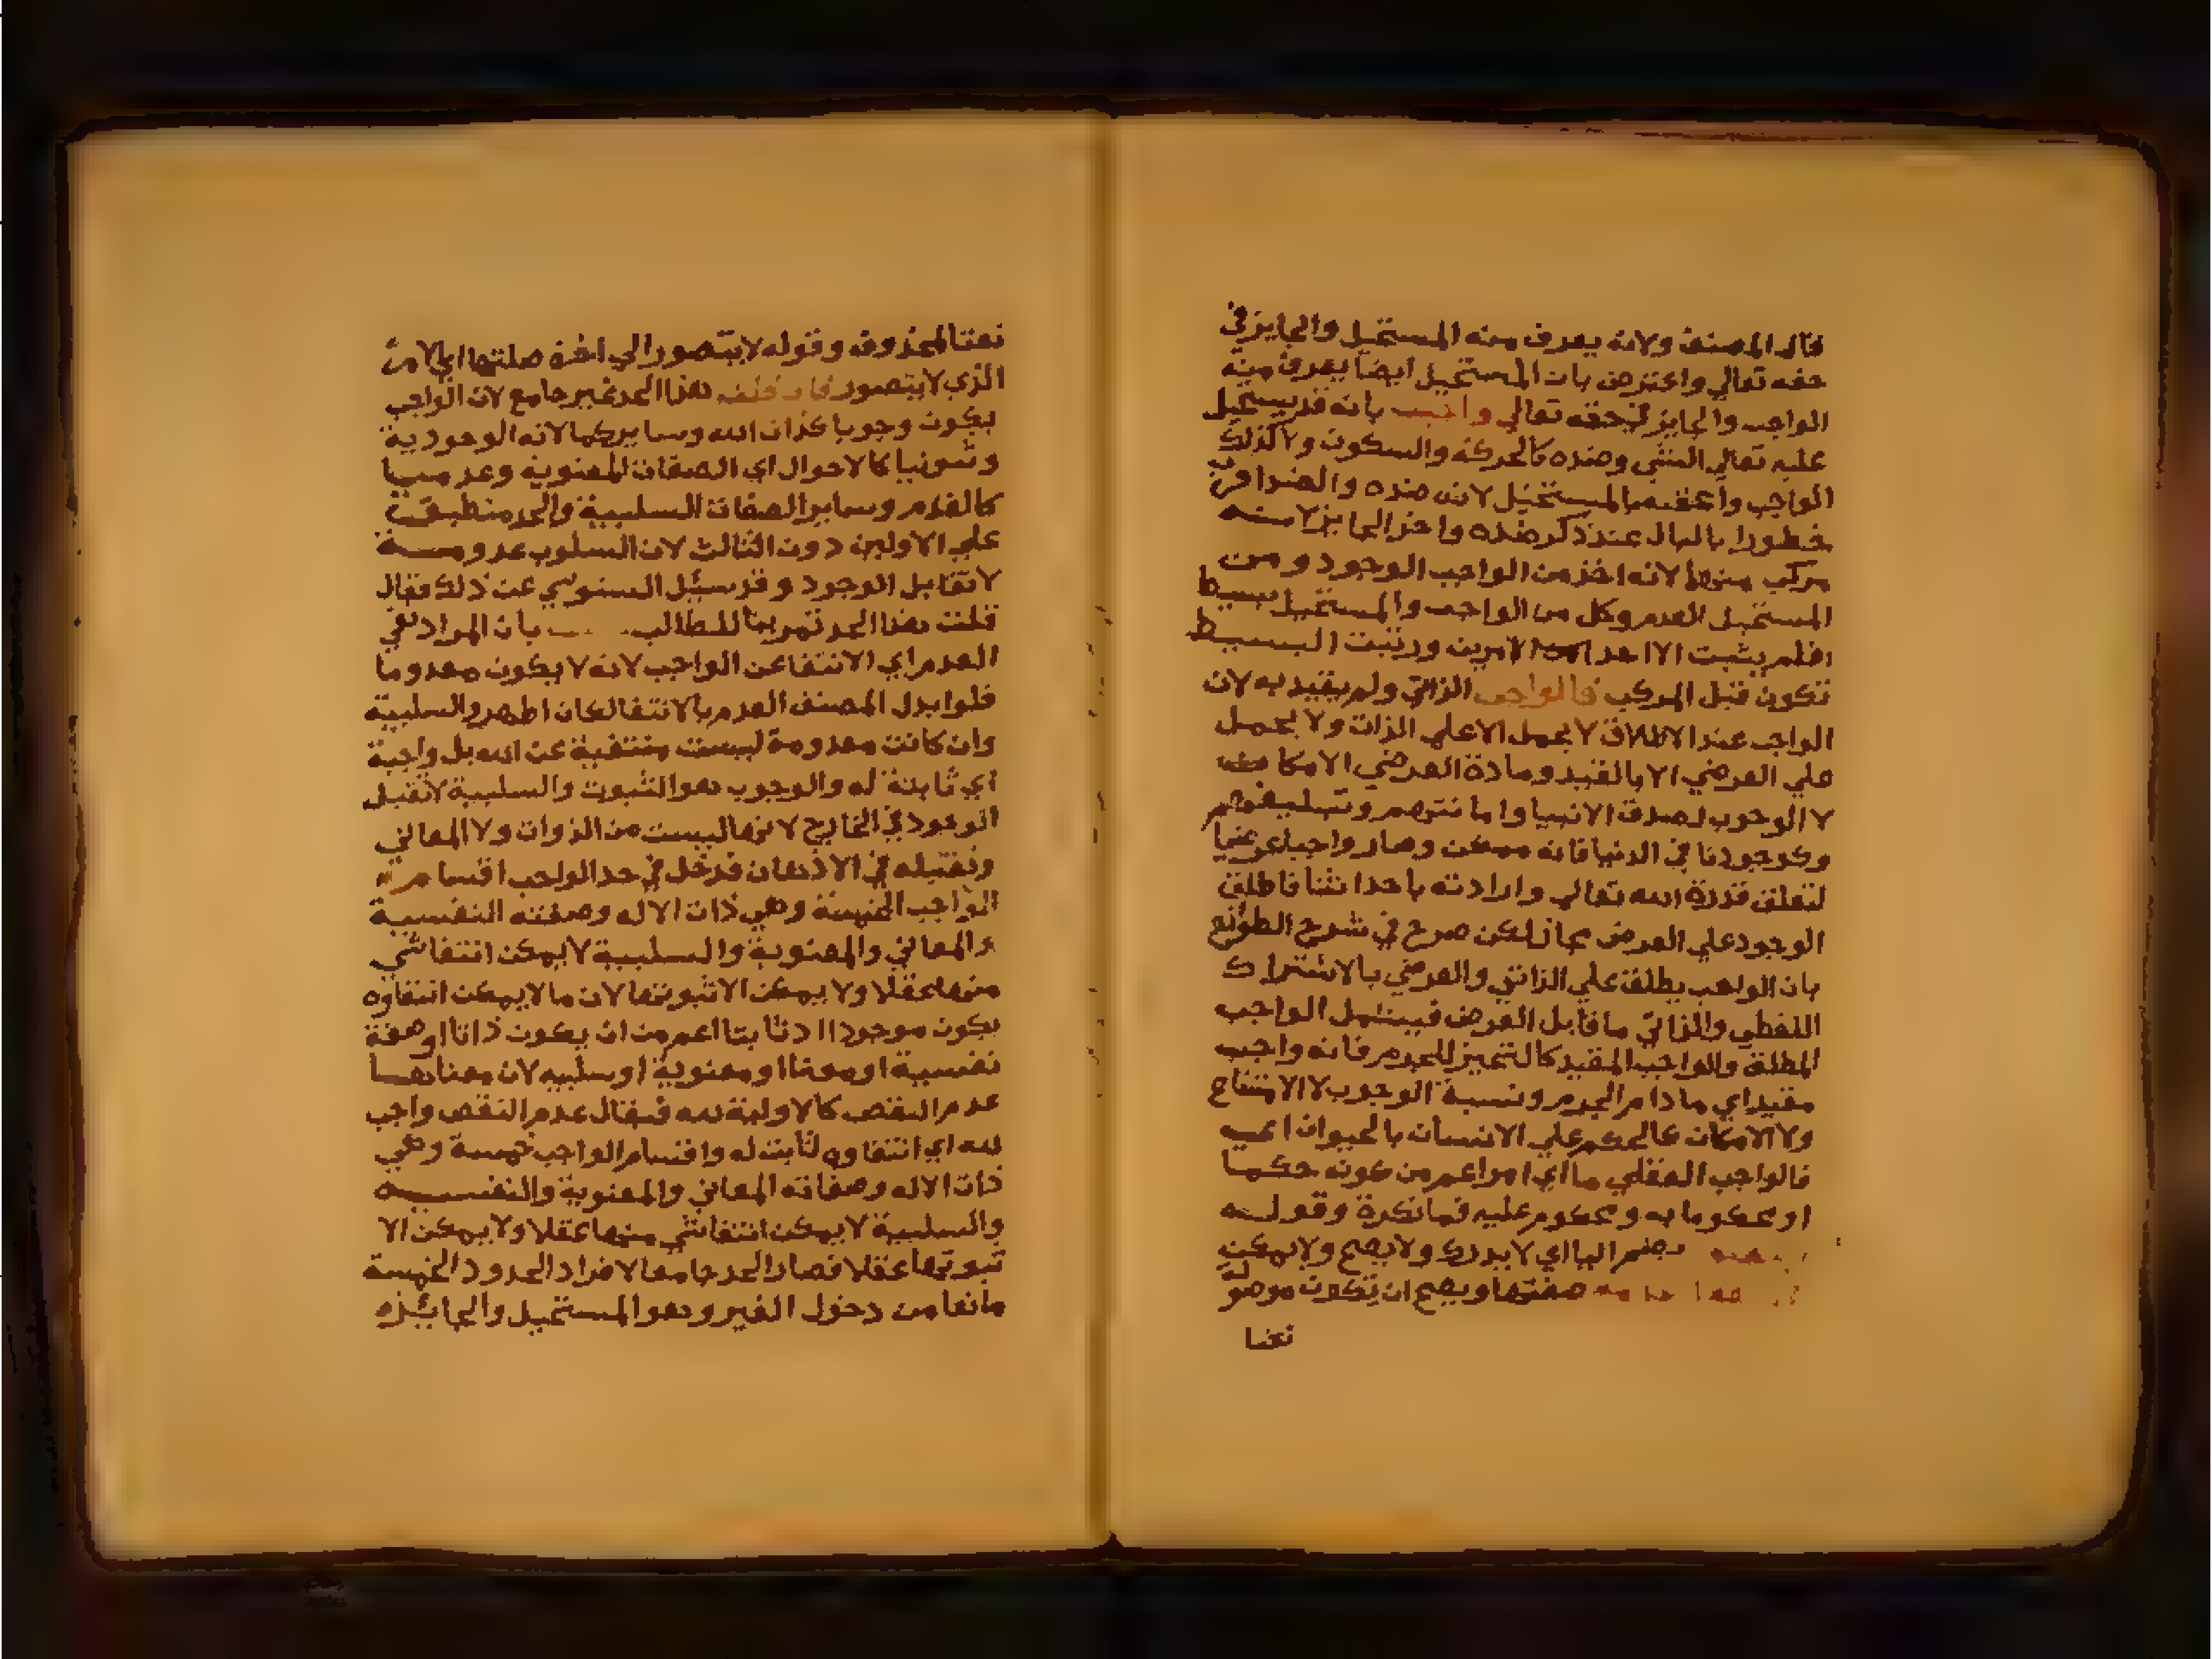 قال المصنف ولانه يعرف منه المستحيل والجايز في
حقه تعالي واعترض بان المستحيل ايضا يعرف منه
الواجب والجايز في حقه تعالي واجيب بانه قد يستحيل
عليه تعالي الشي وضده كالحركة والسكون ولا كذلك
الواجب واعقبه بالمستحيل لانه ضده والضد اقرب
خطورا بالبال عند ذكر ضده واخر الجايز لانه
مركب منهما لانه اخذ من الواجب الوجود ومن
المستحيل العدم وكل من الواجب والمستحيل بسيط
اذ لم يثبت الا احد الامرين ورتبت البسيط
تكون قبل المركب فالواجب الذاتي ولم يقيد به لان
الواجب عند الاطلاق لا يحمل الا علي الذات ولا يحمل
علي العرضي الا بالقيد ومادة العرضي الامكان
لا الوجوب لصدق الانبيا وامانتهم وتبليغهم
وكوجودنا في الدنيا فانه ممكن وصار واجبا عرضيا
لتعلق قدرة الله تعالي وارادته باحداثنا فاطلق
الوجود علي العرض مجاز لكن صرح في شرح الطوالع
بان الواجب يطلق علي الذاتي والعرضي بالاشتراك
اللفظي والذاتي ما قابل العرض فيشمل الواجب
المطلق والواجب المقيد كالتحيز للجرم فانه واجب
مقيد اي ما دام الجرم ونسبة الوجوب لا الامتناع
ولا الامكان كالحكم علي الانسان بالحيوان اعني
فالواجب العقلي ما اي امر اعم من كونه حكما
او محكوما به ومحكوم عليه فما نكرة وقوله
بضم اليا اي لا يدرك ولا يصح ولا يمكن
صفتها ويصح ان تكون موصولة
نعتا
نعتا لمحذوف وقوله لا يتصور الي اخره صلتها اي الامر
الذي لا يتصور هذا الحد غير جامع لان الواجب
يكون وجوبا كذات الله وساير كمالاته الوجودية
وثبوتيا كالاحوال اي الصفات المعنوية وعدميا
كالقدم وساير الصفات السلبية والحد منطبق
علي الاولين دون الثالث لان السلوب عدومية
لا تقابل الوجود وقد سئل السنوسي عن ذلك فقال
قلت هذا الحد تمرينا للطالب بان المراد نفي
العدم اي الانتفا عن الواجب لانه لا يكون معدوما
فلو ابدل المصنف العدم بالانتفا لكان اظهر والسلبية
وان كانت معدومة ليست منتفية عن الله بل واجبة
اي ثابتة له والوجوب هو الثبوت والسلبية لا تقبل
الوجود في الخارج لانها ليست من الذوات ولا المعاني
وتقبله في الاذهان فدخل في حد الواجب اقسام
الواجب الخمسة وهي ذات الاله وصفته النفسية
والمعاني والمعنوية والسلبية لا يمكن انتفا شي
منها عقلا ولا يمكن الا ثبوتها لان ما لا يمكن انتفاوه
يكون موجودا او ثابتا اعم من ان يكون ذاتا او صفة
نفسية او معنا او معنوية او سلبيه لان معناهما
عدم النقص كالاولية لله فيقال عدم النقص واجب
لله اي انتفاوه ثابت له واقسام الواجب خمسة وهي
ذات الاله وصفاته المعاني والمعنوية والنفسيه
والسلبية لا يمكن انتفا شي منها عقلا ولا يمكن الا
ثبوتها عقلا فصار الحد جامعا لافراد الحدود الخمسة
مانعا من دخول الغير وهو المستحيل والجائز